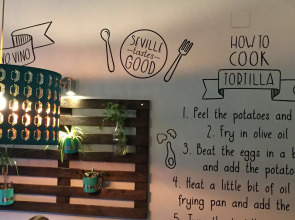 O VINO
SEVILLE
tastes
GOOD
HOW TO
COOK
TORTILLA
1. Peel the potatoes and
2. Fry in olive oil
3. Beat the eggs in a b
and add the potato
4. Heat a little bit of oil
frying pan and add the